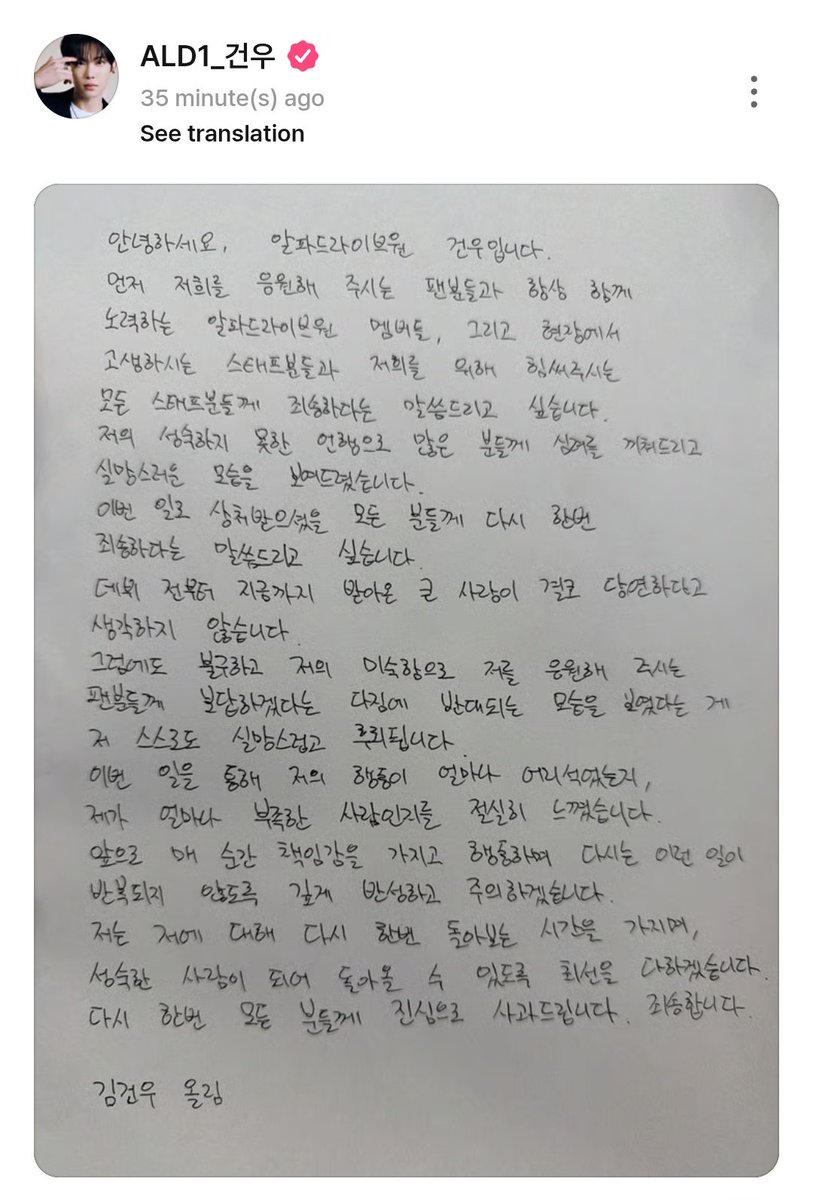 ALD1_건우
35 minute(s) ago
See translation
안녕하세요, 알파드라이브원 건우입니다.
먼저 저희를 응원해 주시는 팬분들과 항상 함께
노력하는 알파드라이브원 멤버들, 그리고 현장에서
고생하시는 스태프분들과 저희를 위해 힘써주시는
모든 스태프분들께 죄송하다는 말씀드리고 싶습니다.
저의 성숙하지 못한 언행으로 많은 분들께 심려를 끼쳐드리고
실망스러운 모습을 보여드렸습니다.
이번 일로 상처받으셨을 모든 분들께 다시 한번
죄송하다는 말씀드리고 싶습니다.
데뷔 전부터 지금까지 받아온 큰 사랑이 결코 당연하다고
생각하지 않습니다.
그럼에도 불구하고 저의 미숙함으로 저를 응원해 주시는
팬분들께 보답하겠다는 다짐에 반대되는 모습을 보였다는 게
저 스스로도 실망스럽고 후회됩니다.
이번 일을 통해 저의 행동이 얼마나 어리석었는지,
제가 얼마나 부족한 사람인지를 절실히 느꼈습니다.
앞으로 매 순간 책임감을 가지고 행동하며 다시는 이런 일이
반복되지 않도록 깊게 반성하고 주의하겠습니다.
저는 저에 대해 다시 한번 돌아보는 시간을 가지며,
성숙한 사람이 되어 돌아올 수 있도록 최선을 다하겠습니다.
다시 한번 모든 분들께 진심으로 사과드립니다. 죄송합니다.
김건우 올림